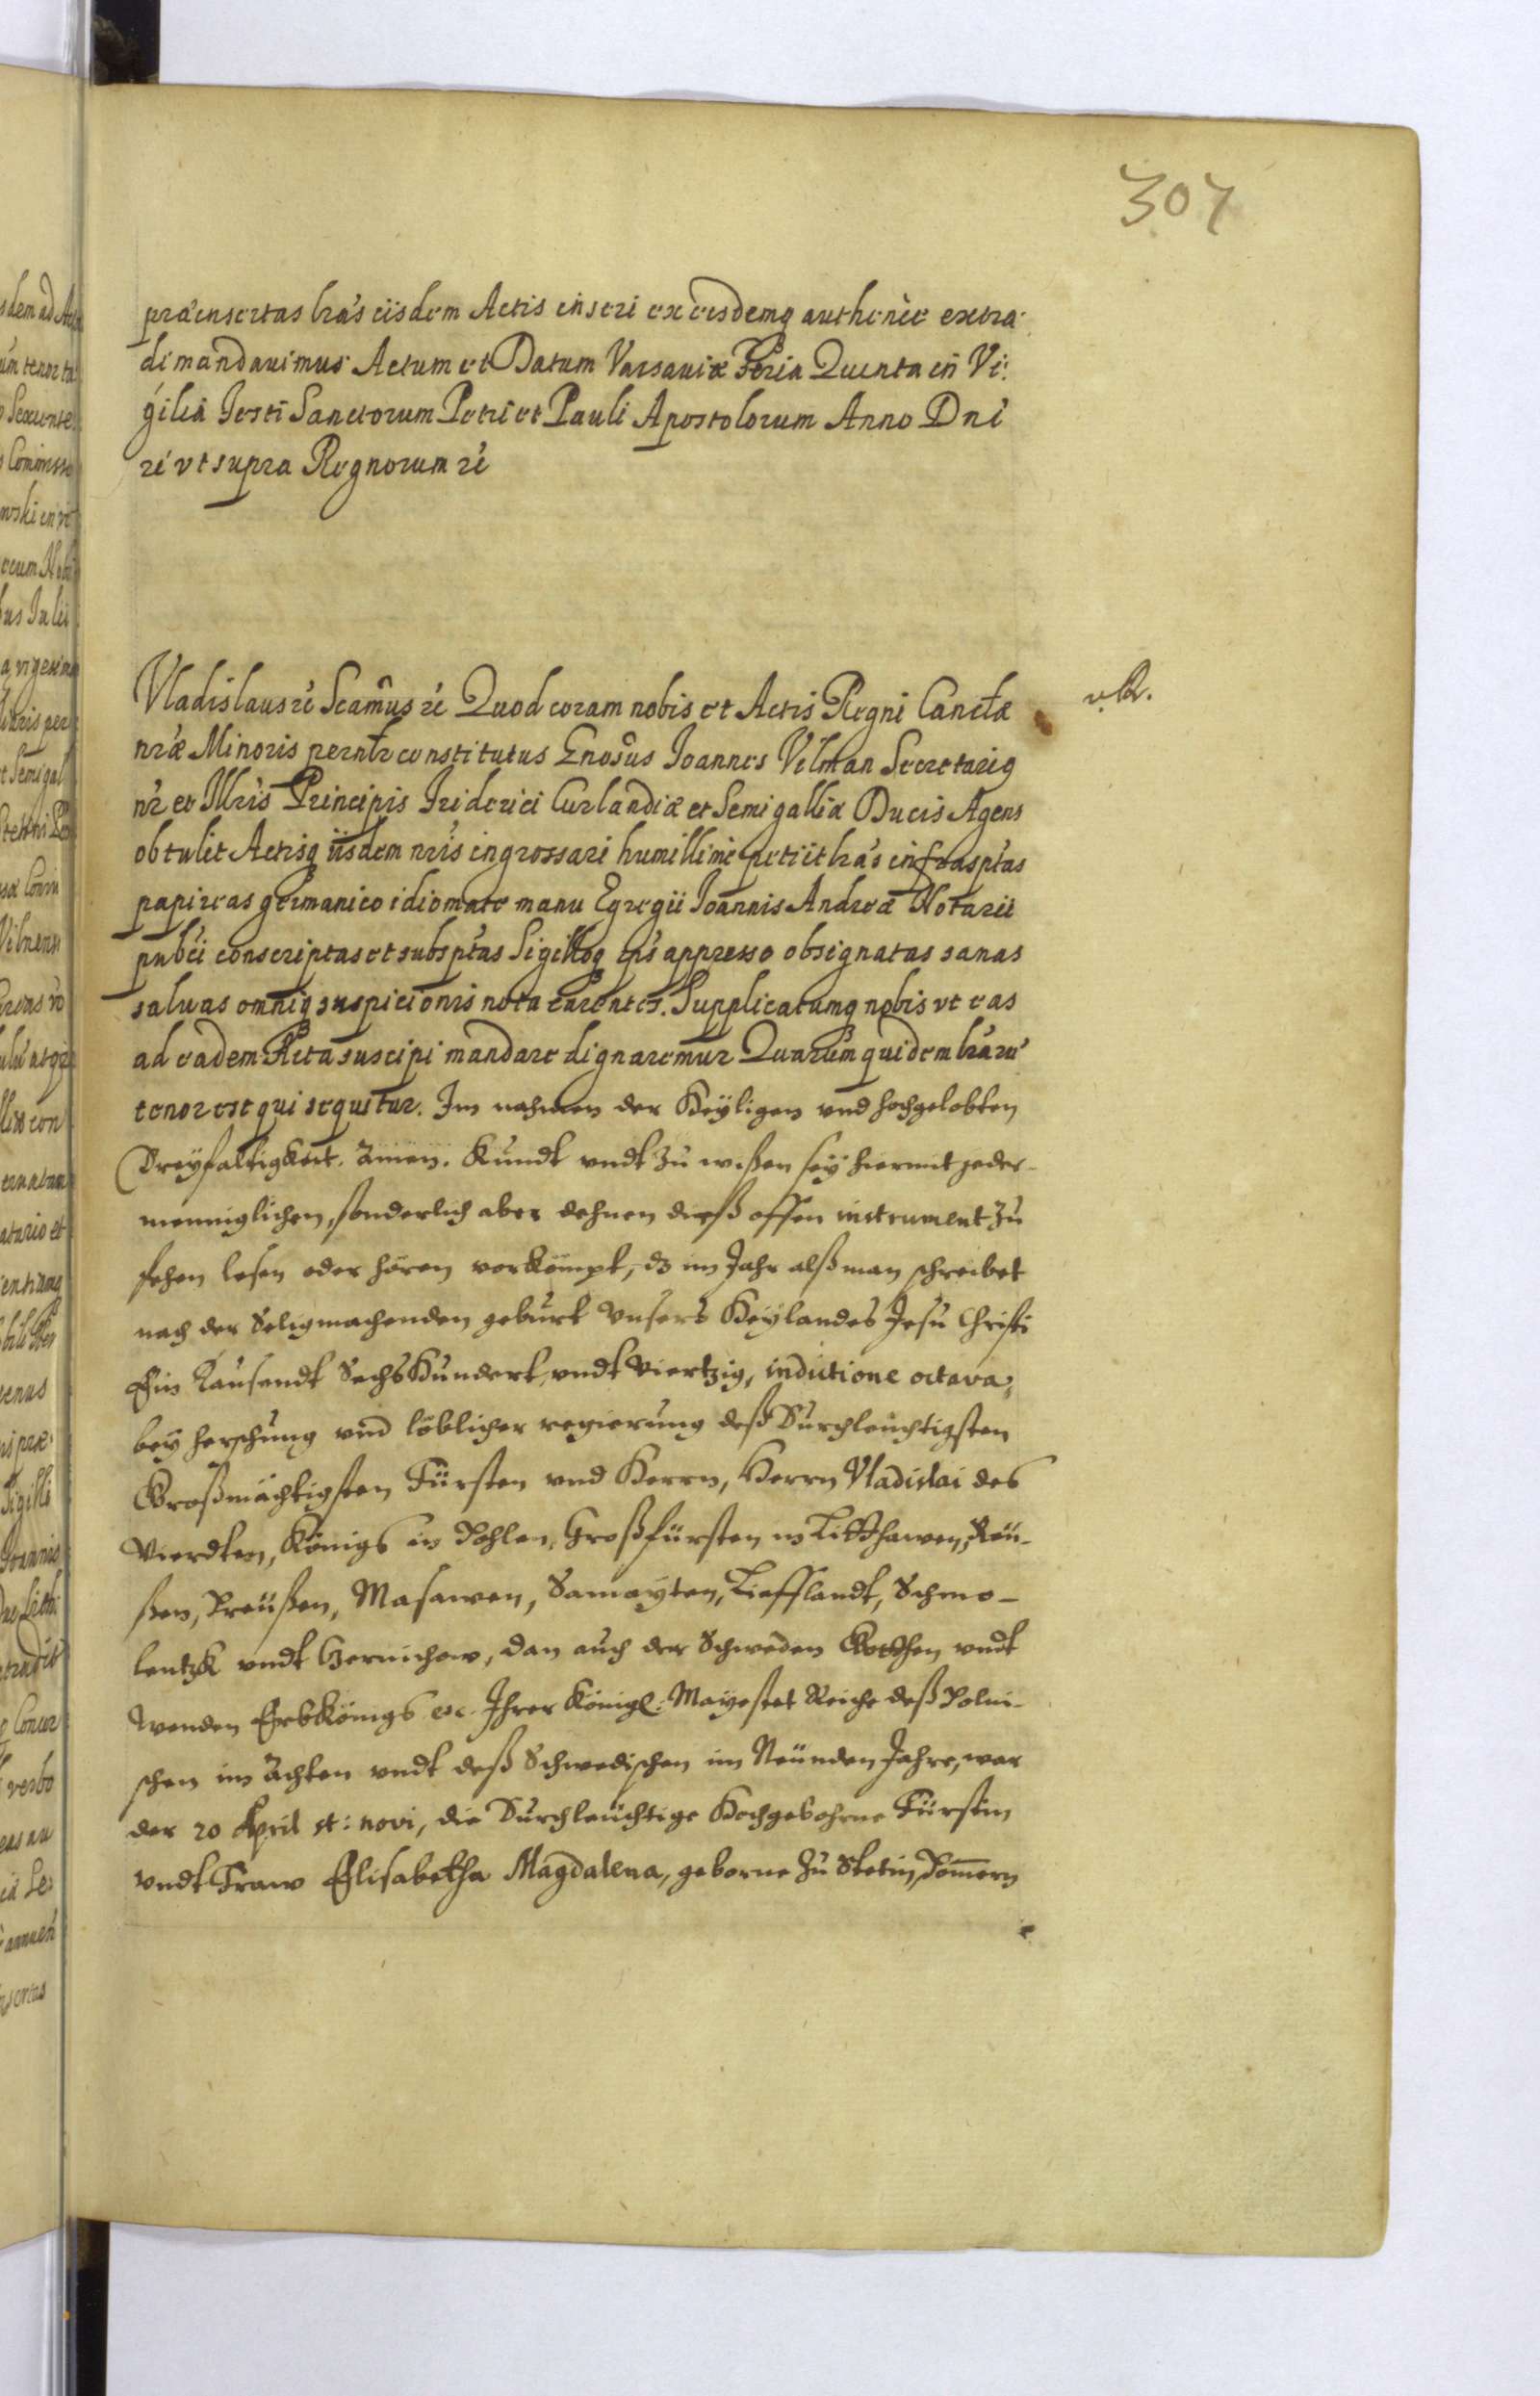 307
præinsertas lrãs iisdem Actis inseri ex eisdemq authenice extra
di mandavimus Actum et Datum Varsaviæ Feria Quinta in Vi:
gilia Festi Sanctorum Petri et Pauli Apostolorum Anno Dni
rć vt supra Regnorum rć
Vladislaus rć Scamus rć Quod coram nobis et Actis Regni Canctæ
nræ Minoris perntr constitutus Gnosus Joannes Vilman Secretariq
nr et Illris Principis Friderici Curlandiæ et Semigalliæ Ducis Agens
obtulit Actisq iisdem nris ingrossari humillime petiit lrãs infrasptas
papireas germanico idiomate manu Egregii Joannis Andreæ Notarii
pubci conscriptas et subsptas Sigilloq eps appresso obsignatas sanas
salvas omniq suspicionis nota carentes. Supplicatumq nobis vt eas
ad eadem Acta suscipi mandare dignaremur Quarum quidem lrãrũ
tenor est qui sequitur. Im nahmen der Heyligen vnd hochgelobten
Dreyfaltigkeit. Amen. Kundt vndt zu wißen sey hiermit jeder-
menniglichen, sonderlich aber dehnen dieß offen instrument zu
sehen lesen oder hören vorkömpt, dz im Jahr alß man schreibet
nach der Seligmachenden geburt Vnsers Heylandes Jesu Christi
Ein Tausendt Sechs Hundert, vndt Viertzig, indictione octava,
bey herschung vnd löblicher regierung deß Durchleuchtigsten
Großmächtigsten Fürsten vnd Herrn, Herrn Vladislai des
Vierdten, Königs in Pohlen, Großfürsten in Litthawen, Reü-
ßen, Preüßen, Masawen, Samayten, Liefflandt, Schmo-
lentzk vndt Czernichow, dan auch der Schweden Gotthen vndt
Wenden Erbkönigs etc. Ihrer Königl: Mayestet Reiche deß Polni-
schen im Achten vndt deß Schwedischen im Neünden Jahre, war
der 20 April st: novi, die Durchleuchtige Hochgebohrne Fürstin
vndt Fraw Elisabetha Magdalena, geborne zu Stetin, Pommern